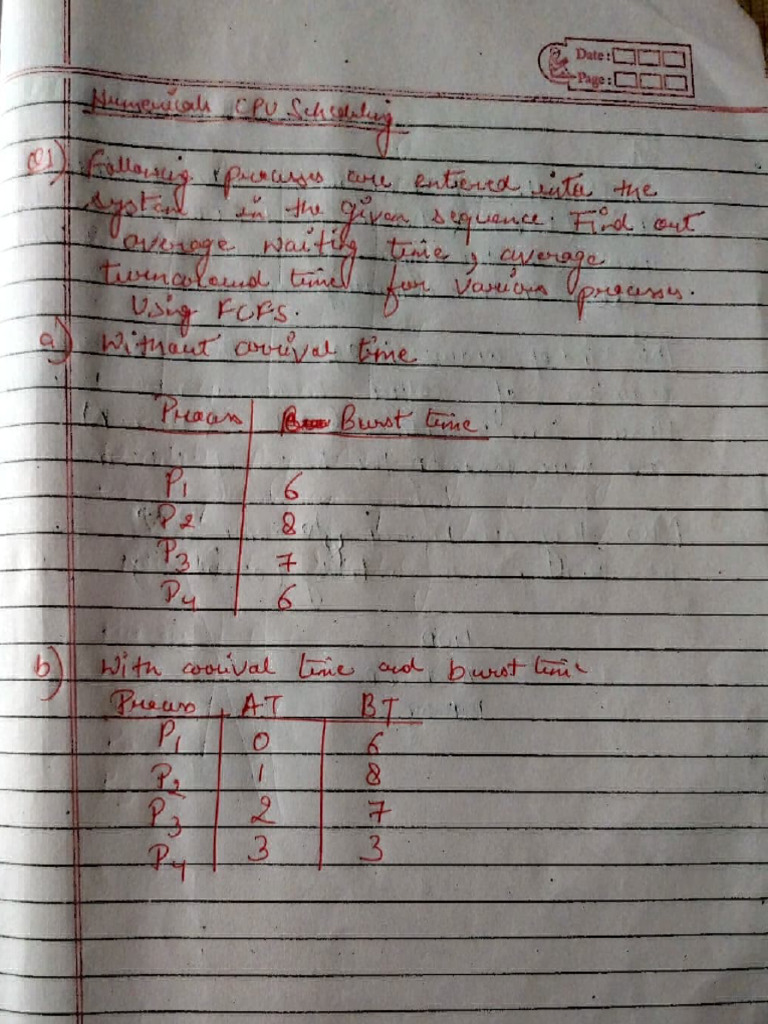 Date:
Page:
Numericals CPU Scheduling
Q1) Following processes are entered into the
system in the given sequence. Find out
average waiting time, average
turnaround time for various processes.
Using FCFS.
a) Without arrival time
Process Burst time.
P1 6
P2 8
P3 7
P4 6
b) With arrival time and burst time
Process AT BT
P1 0 6
P2 1 8
P3 2 7
P4 3 3